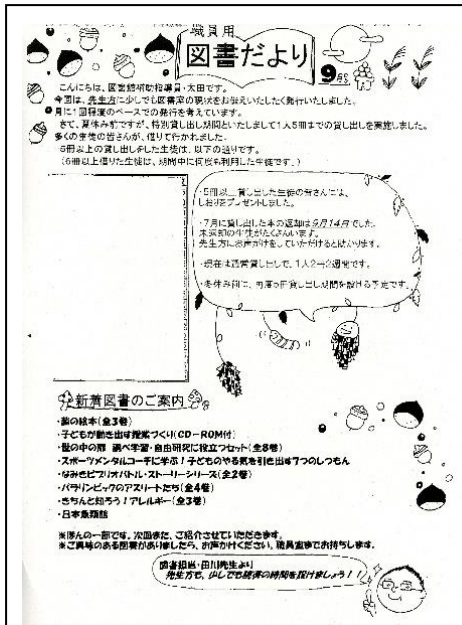 職員用
図書だより
9月号
こんにちは、図書館補助指導員・太田です。
今回は、先生方に少しでも図書室の現状をお伝えいたしたく発行いたしました。
月に1回程度のペースでの発行を考えています。
さて、夏休み前ですが、特別貸し出し期間といたしまして1人5冊までの貸し出しを実施しました。
多くの生徒の皆さんが、借りて行かれました。
5冊以上の貸し出しをした生徒は、以下の通りです。
(6冊以上借りた生徒は、期間中に何度も利用した生徒です。)
・5冊以上貸し出した生徒の皆さんには、
しおりをプレゼントしました。
・7月に貸し出した本の返却は9月14日でした。
未返却の生徒がたくさんいます。
先生方にお声がけをしていただけると助かります。
・現在は通常貸し出しで、1人2冊2週間です。
・冬休み前に、再度5冊貸し出し期間を設ける予定です。
新着図書のご案内
の絵本(全3巻)
・子どもが動き出す授業づくり(CD-ROM付)
・世の中の扉 調べ学習・自由研究に役立つセット(全8巻)
・スポーツメンタルコーチに学ぶ!子どものやる気を引き出す7つのしつもん
・なみきビブリオバトル・ストーリーシリーズ(全2巻)
・パラリンピックのアスリートたち(全4巻)
・きちんと知ろう!アレルギー(全3巻)
・日本魚類館
※ほんの一部です。次回また、ご紹介させていただきます。
※ご興味のある図書がありましたら、お声かけください。職員室までお持ちします。
図書担当・田川先生より
先生方も、少しでも読書の時間を設けましょう!!